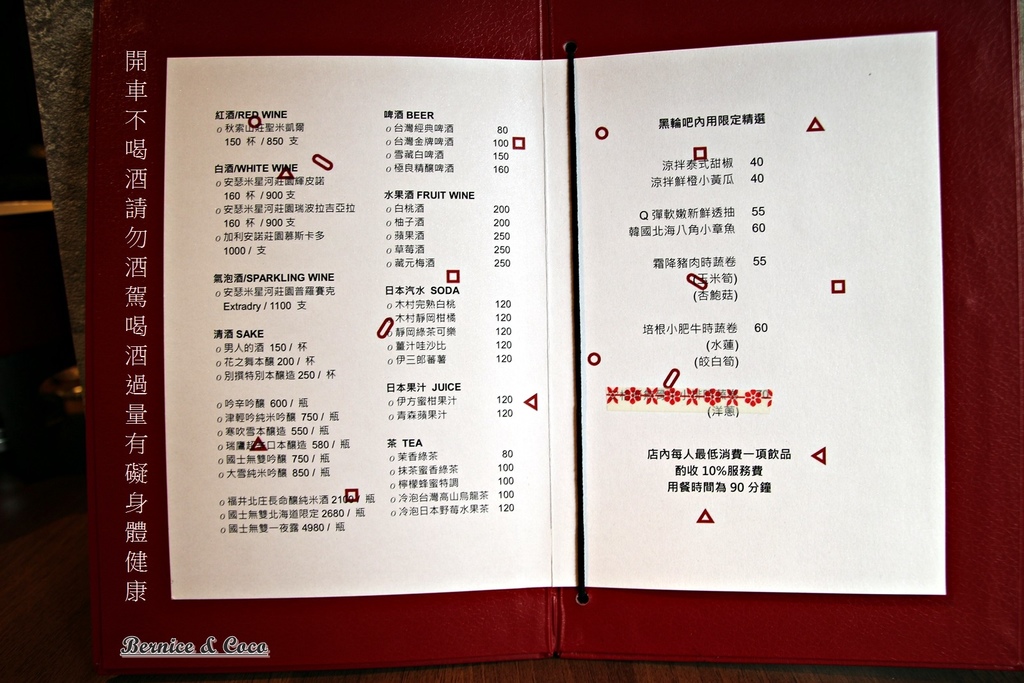 開車不喝酒請勿酒駕喝酒過量有礙身體健康
紅酒/RED WINE
o 秋索山莊聖米凱爾
150 杯 / 850 支
白酒/WHITE WINE
o 安瑟米星河莊園輝皮諾
160 杯 / 900 支
o 安瑟米星河莊園瑞波拉吉亞拉
160 杯 / 900 支
o 加利安諾莊園慕斯卡多
1000 / 支
氣泡酒/SPARKLING WINE
o 安瑟米星河莊園普羅賽克
Extradry / 1100 支
清酒 SAKE
o 男人的酒 150 / 杯
o 花之舞本釀 200 / 杯
o 別撰特別本釀造 250 / 杯
o 吟辛吟釀 600 / 瓶
o 津輕吟純米吟釀 750 / 瓶
o 寒吹雪本釀造 550 / 瓶
o 瑞鷹超辛口本釀造 580 / 瓶
o 國士無雙吟釀 750 / 瓶
o 大雪純米吟釀 850 / 瓶
o 福井北庄長命釀純米酒 2100 / 瓶
o 國士無雙北海道限定 2680 / 瓶
o 國士無雙一夜露 4980 / 瓶
啤酒 BEER
o 台灣經典啤酒 80
o 台灣金牌啤酒 100
o 雪藏白啤酒 150
o 極良精釀啤酒 160
水果酒 FRUIT WINE
o 白桃酒 200
o 柚子酒 200
o 蘋果酒 250
o 草莓酒 250
o 藏元梅酒 250
日本汽水 SODA
o 木村完熟白桃 120
o 木村靜岡柑橘 120
o 靜岡綠茶可樂 120
o 薑汁哇沙比 120
o 伊三郎蕃薯 120
日本果汁 JUICE
o 伊方蜜柑果汁 120
o 青森蘋果汁 120
茶 TEA
o 茉香綠茶 80
o 抹茶蜜香綠茶 100
o 檸檬蜂蜜特調 100
o 冷泡台灣高山烏龍茶 100
o 冷泡日本野莓水果茶 120
黑輪吧內用限定精選
涼拌泰式甜椒 40
涼拌鮮橙小黃瓜 40
Q 彈軟嫩新鮮透抽 55
韓國北海八角小章魚 60
霜降豬肉時蔬卷 55
(玉米筍)
(杏鮑菇)
培根小肥牛時蔬卷 60
(水蓮)
(皎白筍)
(洋蔥)
店內每人最低消費一項飲品
酌收 10%服務費
用餐時間為 90 分鐘
Bernice & Coco